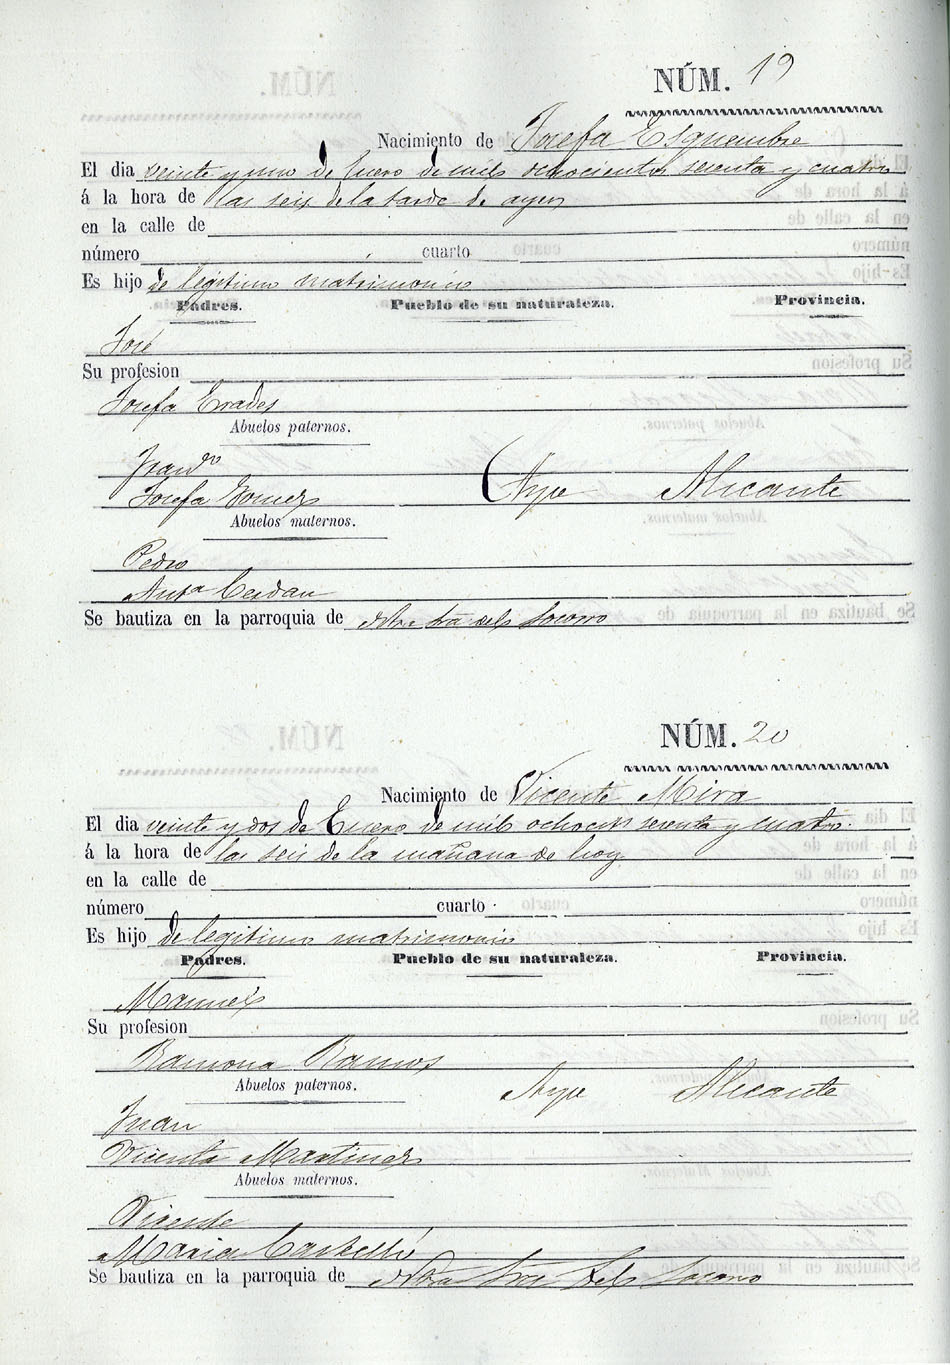 NÚM. 19
Nacimiento de Josefa Esquembre
El dia veinte y uno de Enero de mil ochocientos setenta y cuatro
á la hora de las seis de la tarde de ayer
en la calle de
número cuarto
Es hijo de legitimo matrimonio
Padres. Pueblo de su naturaleza. Provincia.
José
Su profesion
Josefa Erades
Abuelos paternos.
Franco
Josefa Gomez Aspe Alicante
Abuelos maternos.
Pedro
Anta Cerdan
Se bautiza en la parroquia de Ntra Sra del Socorro
NÚM. 20
Nacimiento de Vicente Mira
El dia veinte y dos de Enero de mil ochocts setenta y cuatro.
á la hora de las seis de la mañana de hoy
en la calle de
número cuarto
Es hijo de legitimo matrimonio
Padres. Pueblo de su naturaleza. Provincia.
Manuel
Su profesion
Ramona Ramos
Abuelos paternos. Aspe Alicante
Juan
Vicenta Martinez
Abuelos maternos.
Vicente
Maria Castelló
Se bautiza en la parroquia de Ntra Sra del Socorro